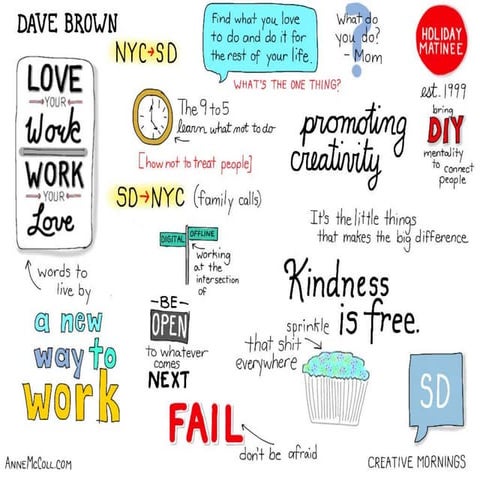 DAVE BROWN
NYC→SD
Find what you love
to do and do it for
the rest of your life.
WHAT'S THE ONE THING?
What do
you do?
- Mom
?
HOLIDAY
MATINEE
est. 1999
bring
DIY
mentality
to connect
people
LOVE
YOUR
Work
WORK
YOUR
Love
words to
live by
The 9 to 5
learn what not to do
[how not to treat people]
promoting
creativity
SD→NYC (family calls)
It's the little things
that makes the big difference
DIGITAL OFFLINE
working
at the
intersection
of
Kindness
is free.
sprinkle
that shit
everywhere
-BE-
OPEN
to whatever
comes
NEXT
a new
way to
work
FAIL
don't be afraid
SD
ANNEMCCOLL.COM
CREATIVE MORNINGS